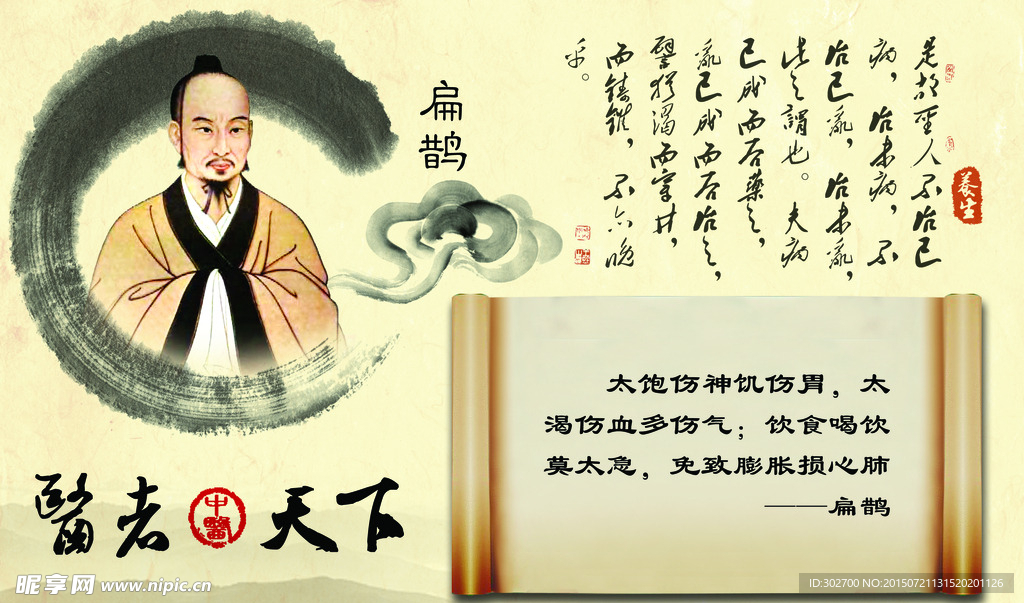 扁鹊
是故聖人不治已
病，治未病，不
治已亂，治未亂，
此之謂也。夫病
已成而后藥之，
亂已成而后治之，
譬猶渴而穿井，
而鑄錐，不亦晚
乎。
养生
太饱伤神饥伤胃，太
渴伤血多伤气；饮食喝饮
莫太急，免致膨胀损心肺
——扁鹊
醫者中醫天下
昵享网 www.nipic.cn
ID:302700 NO:20150721131520201126